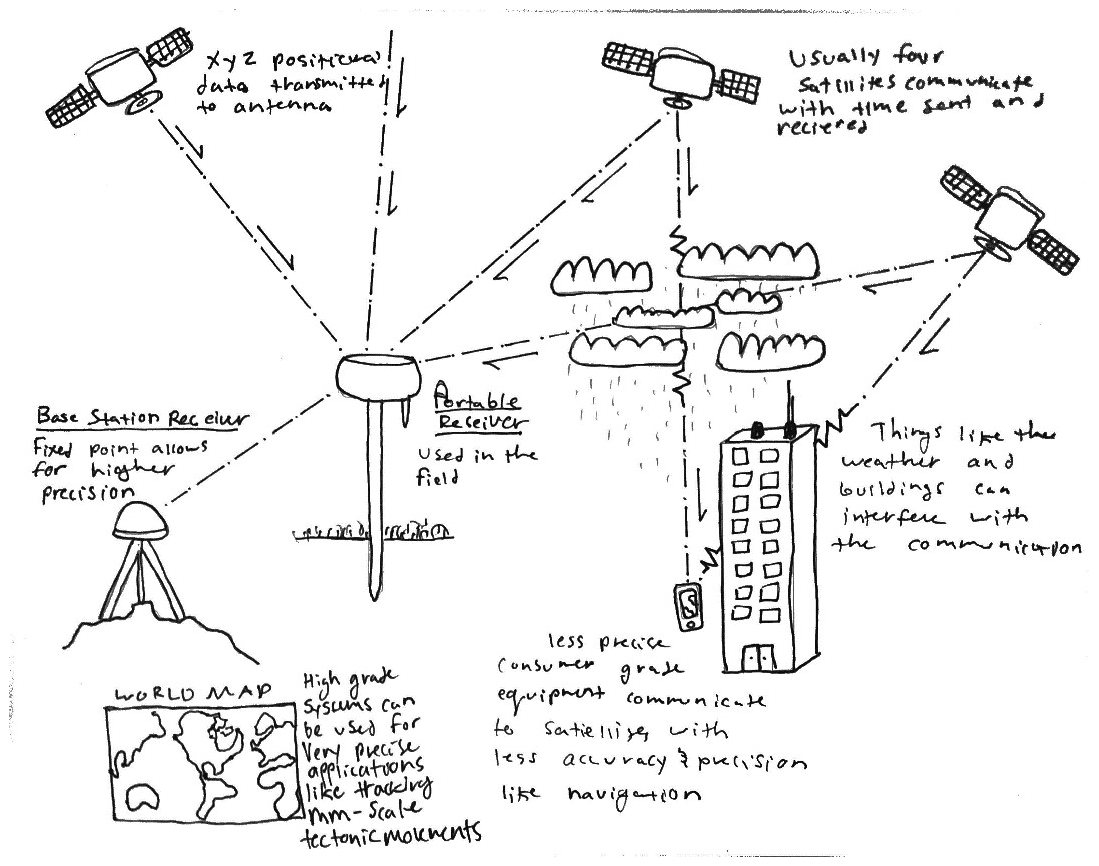 XYZ positional
data transmitted
to antenna
Usually four
satillites communicate
with time sent and
recieved
Base Station Receiver
Fixed point allows
for higher
precision
Portable
Receiver
used in the
field
Things like the
weather and
buildings can
interfere with
the communication
less precise
consumer grade
equipment communicate
to satellites with
less accuracy & precision
like navigation
WORLD MAP
High grade
systems can
be used for
very precise
applications
like tracking
mm-scale
tectonic movements